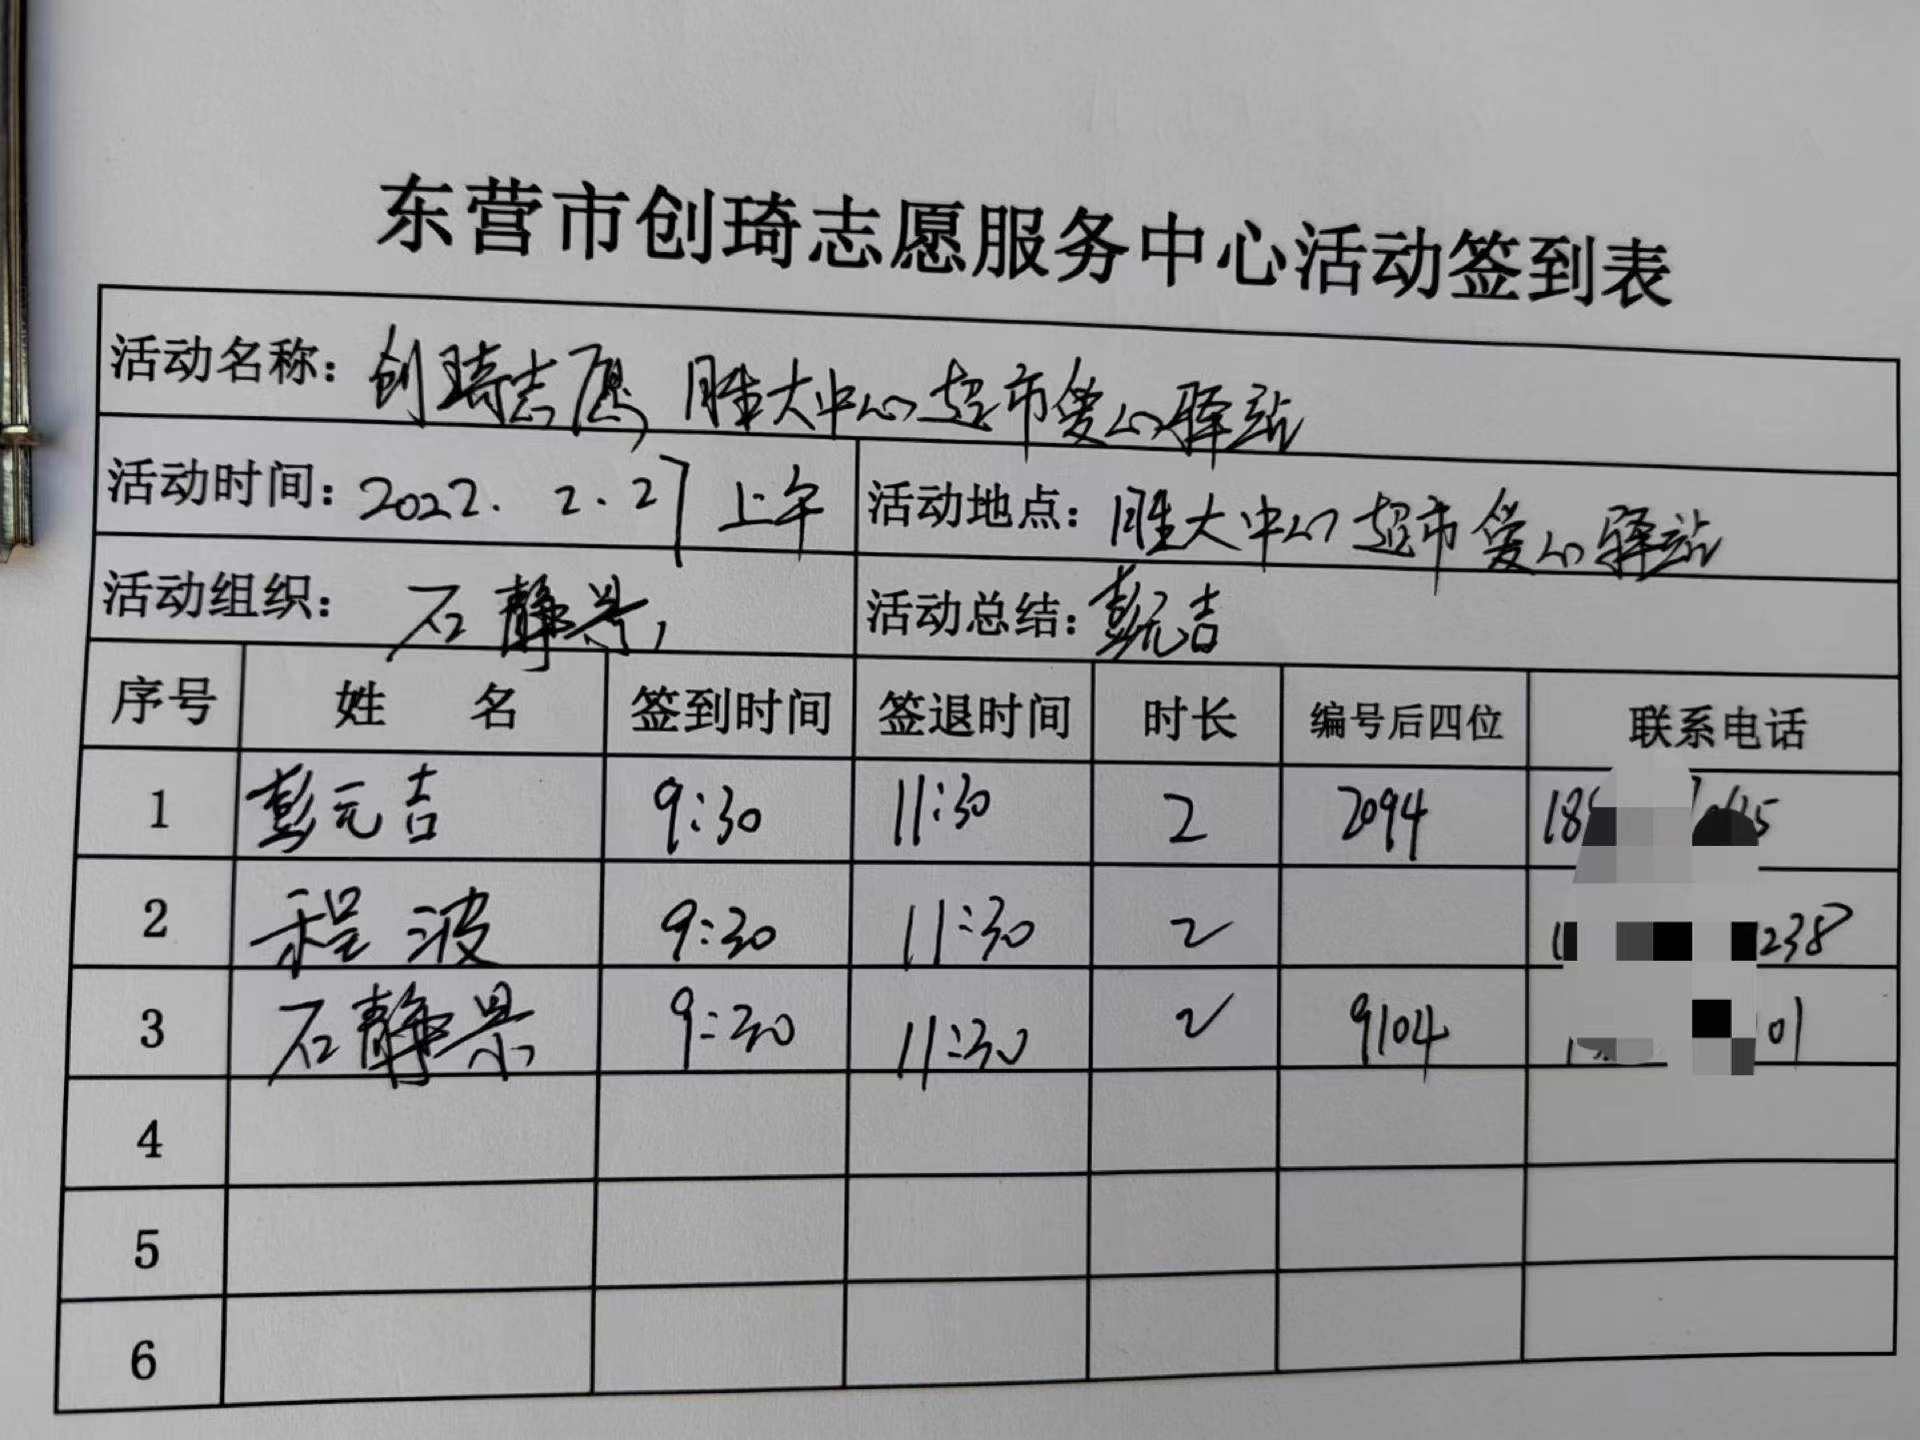 东营市创琦志愿服务中心活动签到表
活动名称：创琦志愿 胜大中心超市爱心驿站
活动时间：2022.2.27上午 活动地点：胜大中心超市爱心驿站
活动组织：石静 活动总结：彭元吉
序号 姓 名 签到时间 签退时间 时长 编号后四位 联系电话
1 彭元吉 9:30 11:30 2 2094
2 程波 9:30 11:30 2 238
3 石静 9:30 11:30 2 9104 01
4
5
6